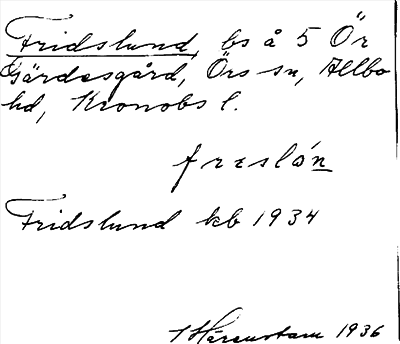 Fridslund, bs å 5 Ör
Gärdesgård, Örs sn, Allbo
hd, Kronobs l.
frɪslón
Fridslund kb 1934
1936